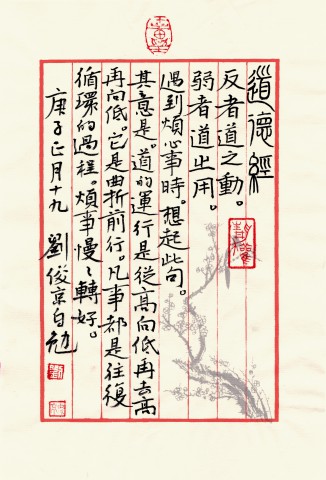 道德經
反者道之動。
弱者道之用。
遇到煩心事時。想起此句。
其意是。道的運行是從高向低再去高
再向低。它是曲折前行。凡事都是往復
循環的過程。煩事慢々轉好。
庚子正月十九 劉俊京自勉